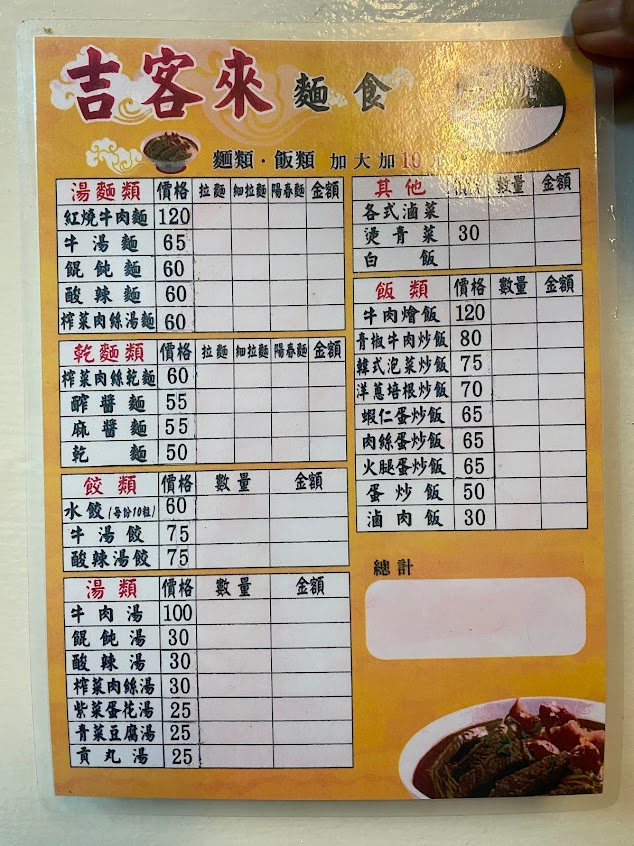 吉客來 麵食
麵類·飯類 加大加10
湯麵類 價格 拉麵 細拉麵 陽春麵 金額
紅燒牛肉麵 120
牛湯麵 65
餛飩麵 60
酸辣麵 60
榨菜肉絲湯麵 60
乾麵類 價格 拉麵 細拉麵 陽春麵 金額
榨菜肉絲乾麵 60
醡醬麵 55
麻醬麵 55
乾麵 50
餃類 價格 數量 金額
水餃(每份10粒) 60
牛湯餃 75
酸辣湯餃 75
湯類 價格 數量 金額
牛肉湯 100
餛飩湯 30
酸辣湯 30
榨菜肉絲湯 30
紫菜蛋花湯 25
青菜豆腐湯 25
貢丸湯 25
其他 數量 金額
各式滷菜
燙青菜 30
白飯
飯類 價格 數量 金額
牛肉燴飯 120
青椒牛肉炒飯 80
韓式泡菜炒飯 75
洋蔥培根炒飯 70
蝦仁蛋炒飯 65
肉絲蛋炒飯 65
火腿蛋炒飯 65
蛋炒飯 50
滷肉飯 30
總計